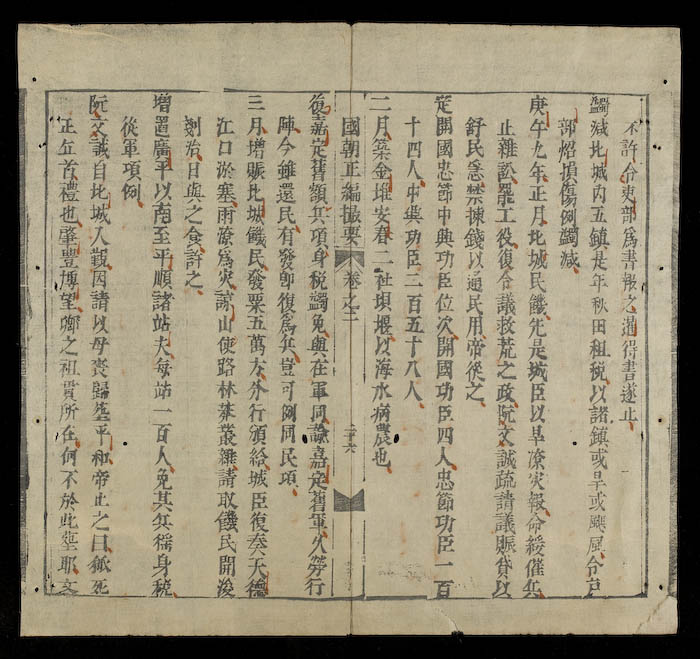 不許令吏部爲書報之瀟得書遂止
蠲減北城内五鎮是年秋田租稅以諸鎮或旱或颶風令戸
部炤損傷例蠲減
庚午九年正月北城民饑先是城臣以旱潦灾報命緩催兵
止雜訟罷工役復令議救荒之政阮文誠疏請議賑貸以
舒民急禁揀錢以通民用帝從之
定開國忠節中興功臣位次開國功臣四人忠節功臣一百
十四人中興功臣二百五十八人
二月築金堆安春二社垻堰以海水病農也
國朝正編撮要 卷之三 二十六
復嘉定舊額兵項身稅蠲免與在軍同諭嘉定舊軍久勞行
陣今雖還民有發卽復爲兵豈可例同民項
三月增賑北城饑民發粟五萬大分行頒給城臣復奏天德
江口淤塞雨潦爲灾諒山使路林莽叢雜請取饑民開浚
剗治日與之食許之
增置廣平以南至平順諸站夫每站一百人免其兵徭身稅
從軍項例
阮文誠自北城入覲因請以母喪歸塟平和帝止之曰狐死
正丘首禮也肇豐博望卿之祖貫所在何不於此塟耶文